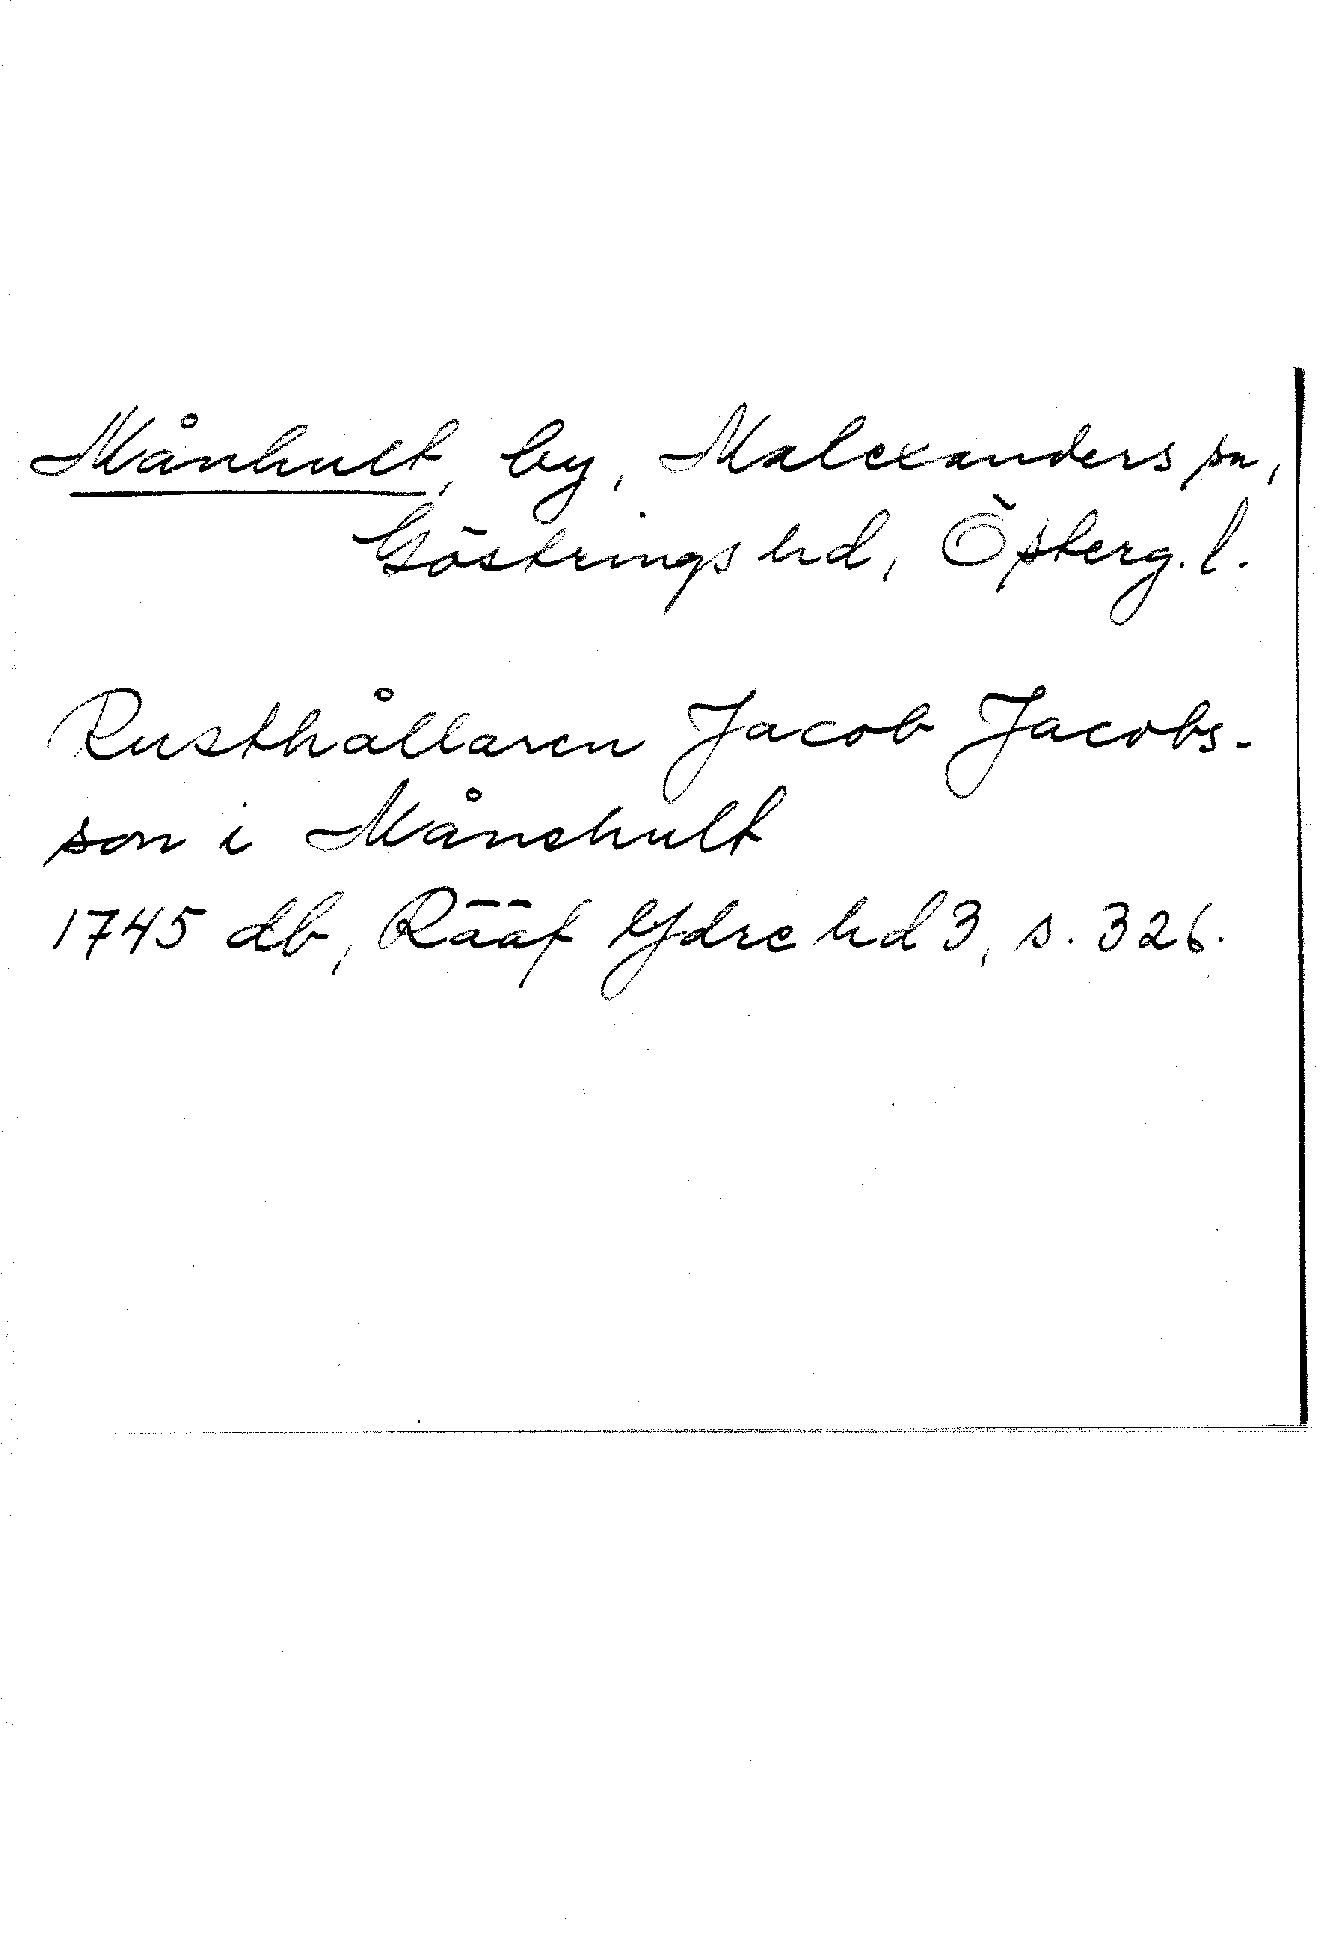 Månhult, by, Malexanders sn,
Göstrings hd, Österg. l.
Rusthållaren Jacob Jacobs-
son i Månehult
1745 db, Rääf Ydre hd 3, s. 326.